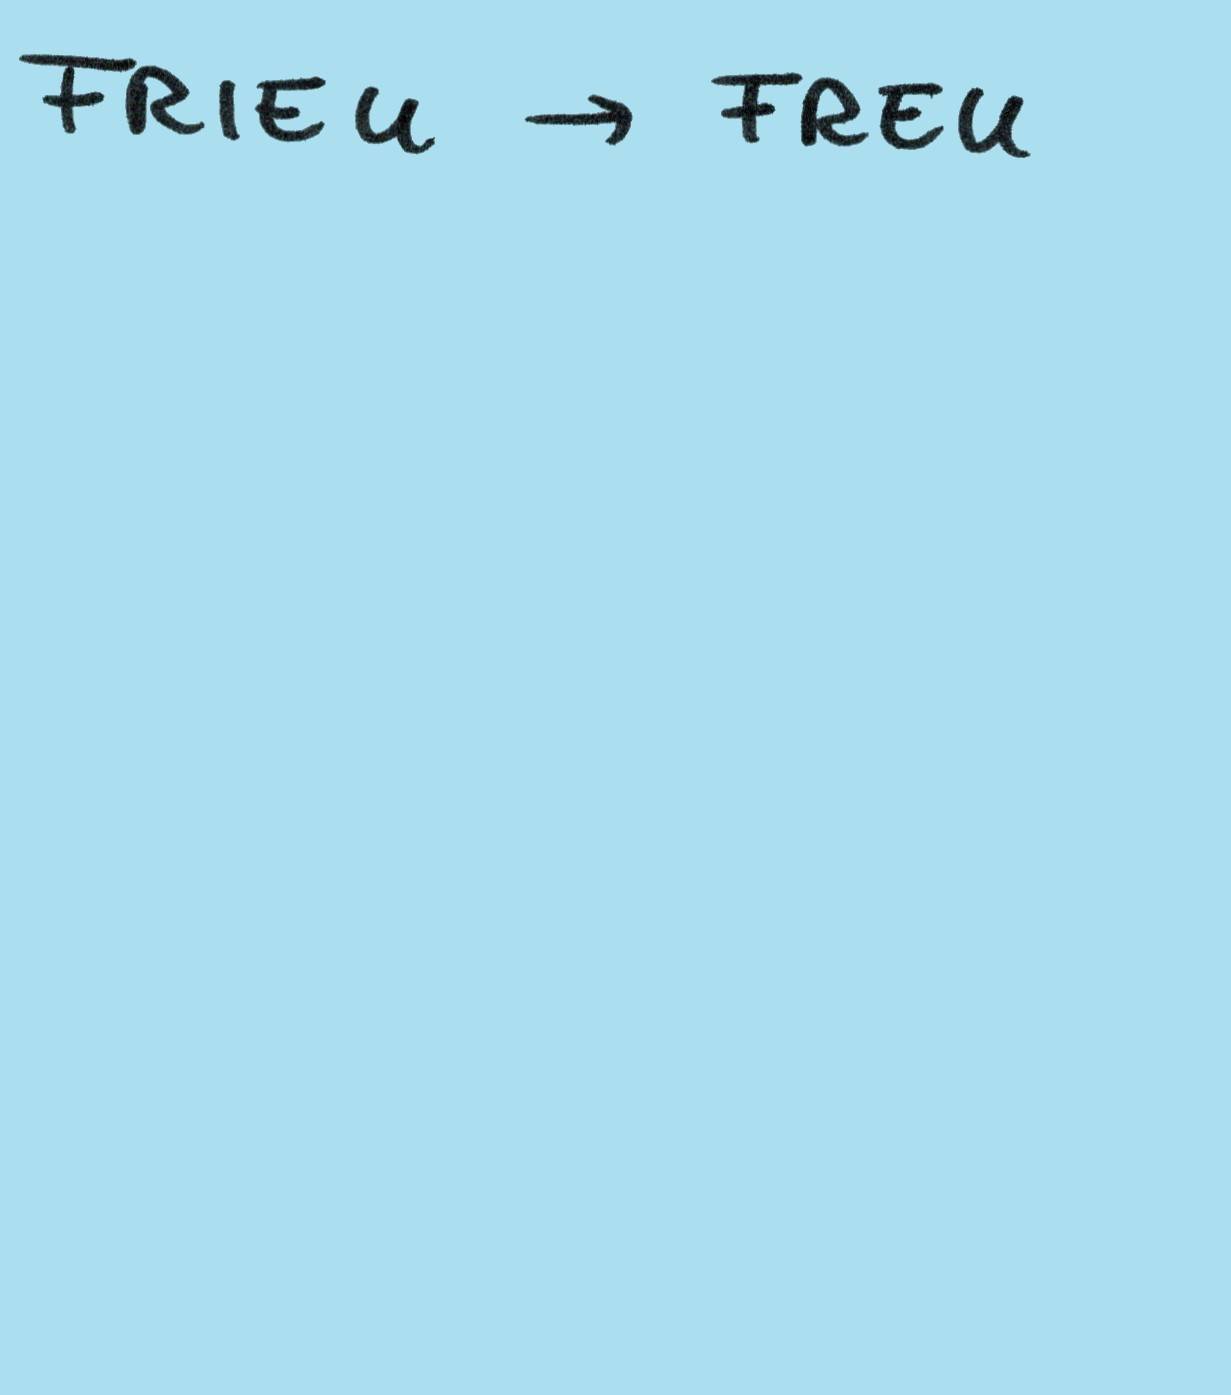 FRIEU → FREU